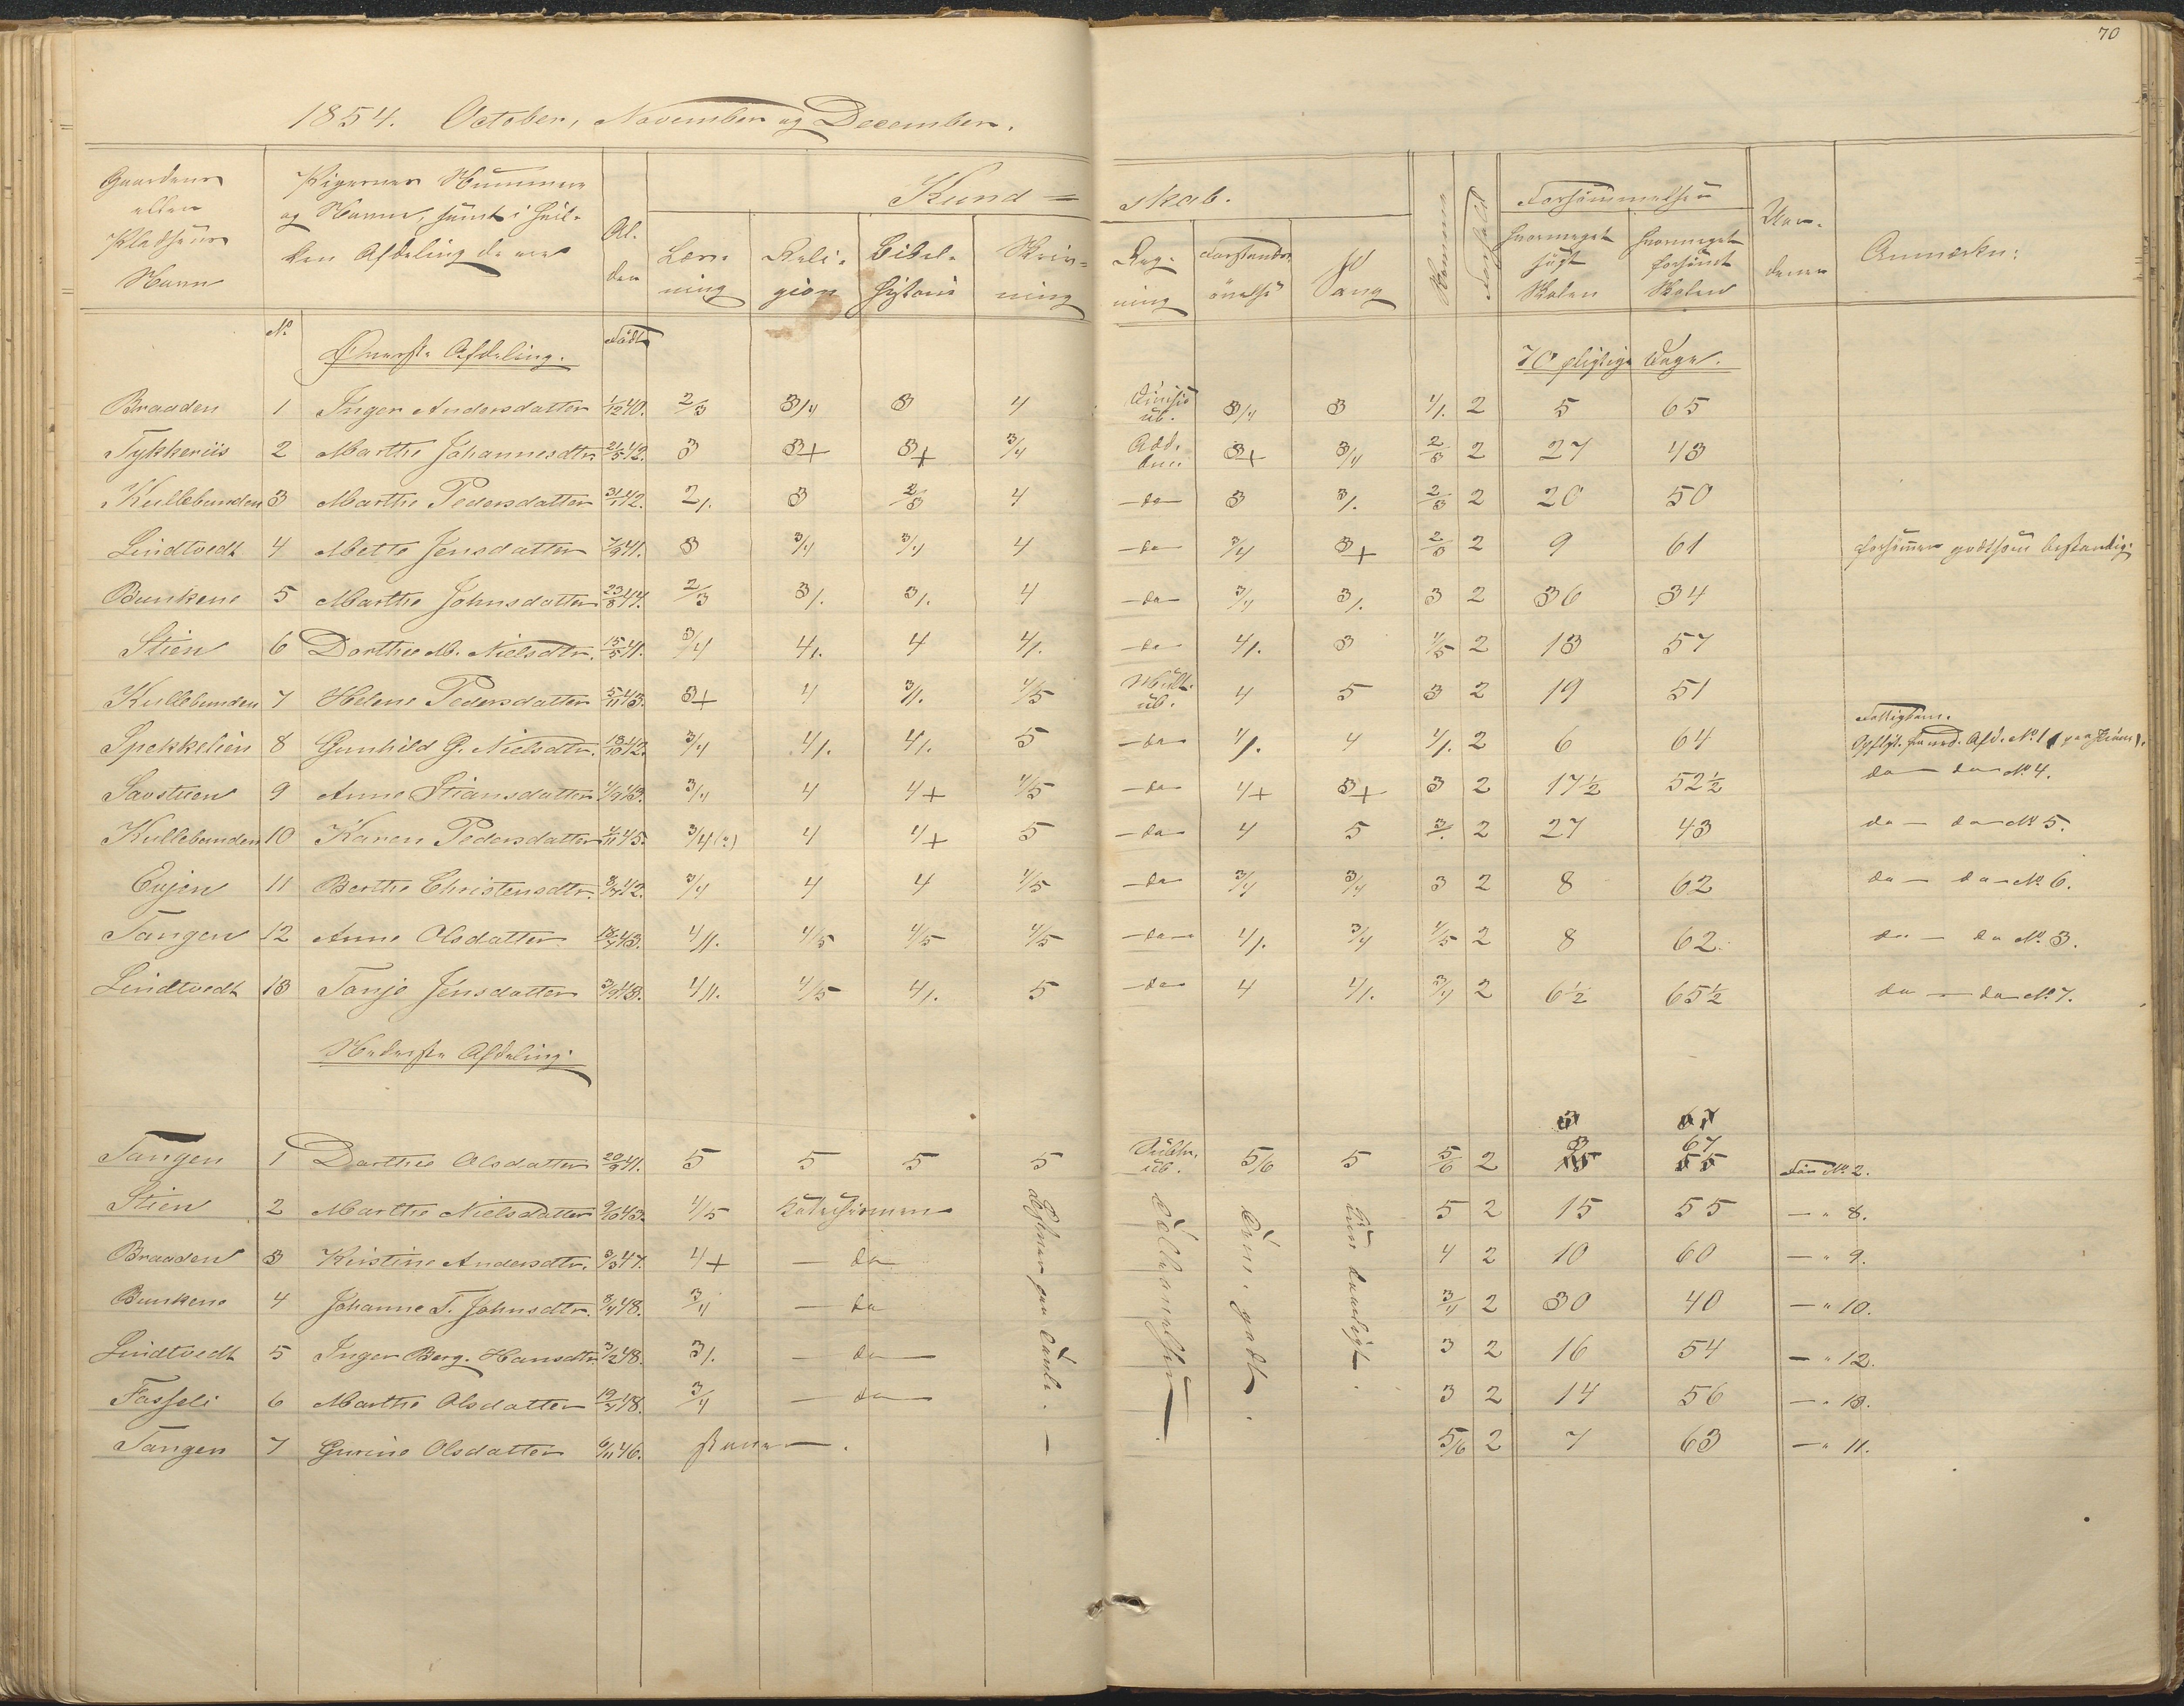 70
1854. October, November og December.
Gaardens eller Pladsens Navn
Pigernes Nummer og Navne, samt i hvilken Afdeling de ere
Alder
Kundskab.
Læsning
Religion
Bibelhistorie
Skrivning
Regning
Forstandsøvelse
Sang
Nemme
Forhold
Forsømmelsen
hvormeget søgt Skolen
hvormeget forsømt Skolen
Anmærkn:
No
Øverste Afdeling.
Født
70 pligtige Dage.
Braaden 1 Inger Andersdatter 1/12 40. 2/3 3/4 3 4 3/4 3 4/. 2 5 65
Tykkeriis 2 Marthe Johannesdtr. 21/5 42. 3 3+ 3+ 3/4 Addi. 3+ 3/4 2/3 2 27 43
Kullebunden 3 Marthe Pedersdatter 31/1 42. 2/. 3 2/3 4 – do – 3 3/. 2/3 2 20 50
Lindtvedt 4 Mette Jensdatter 7/9 41. 3 3/4 3/4 4 – do 3/4 3+ 2/3 2 9 61 forsømmer godtsom bestandig.
Bunkene 5 Marthe Johnsdatter 23/8 44. 2/3 3/. 3/. 4 – do – 3/4 3/. 3 2 36 34
Stien 6 Dorthe M. Nielsdtr. 15/5 41. 3/4 4/. 4 4/. – do – 4/. 3 4/5 2 13 57
Kullebunden 7 Helene Pedersdatter 5/11 43. 3+ 4 3/. 4/5 Mult. ub. 4 5 3 2 19 51
Spekkelien 8 Gunhild G. Nielsdtr. 13/10 42. 3/4 4/. 4/. 5 – do – 4/. 4 4/. 2 6 64 Fattigbarn.
Opflyt. fra ned. Afd. No 1
Savstuen 9 Anne Stiansdatter 4/9 43. 3/4 4 4+ 4/5 – do – 4+ 3+ 3 2 17½ 52½ do – do No 4.
Kullebunden 10 Karen Pedersdatter 4/11 45. 3/4 (:) 4 4+ 5 – do – 4 5 3/. 2 27 43 do – do No 5.
Eujen 11 Berthe Christensdtr. 8/7 42. 3/4 4 4 4/5 – do – 3/4 3/4 3 2 8 62 do – do – No 6.
Tangen 12 Anne Olsdatter 18/4 43. 4//. 4/5 4/5 4/5 – do – 4/. 3/4 4/5 2 8 62. do – do No. 3.
Lindtvedt 13 Tanje Jensdatter 3/9 43. 4//. 4/5 4/. 5 – do 4 4/. 3/4 2 6½ 65½ do – do No 7.
Nederste Afdeling.
3 67
Tangen 1 Dorthe Olsdatter 20/9 41. 5 5 5 5 Subtr. ub. 5/6 5 5/6 2 3 67 Før No 2.
Stien 2 Marthe Nielsdatter 9/10 43. 4/5 Katechismen 5 2 15 55 – " 8.
Braaden 3 Kirstine Andersdtr. 3/3 47. 4+ – do 4 2 10 60 – " 9.
Bunkene 4 Johanne T. Johnsdtr. 8/4 48. 3/4 – do 3/4 2 30 40 – " 10.
Lindtvedt 5 Inger Berg. Hansdtr. 3/2 48. 3/. – do 3 2 16 54 – " 12.
Fasseli 6 Marthe Olsdatter 19/4 48. 3/4 – do 3 2 14 56 – " 13.
Tangen 7 Gurine Olsdatter 6/11 46. staver – . 5/6 2 7 63 – " 11.